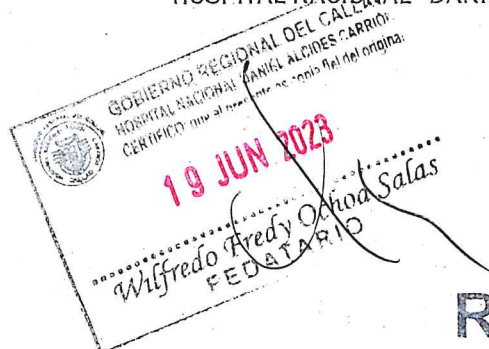 HOSPITAL NACIONAL DANI
GOBIERNO REGIONAL DEL CALLAO
HOSPITAL NACIONAL DANIEL ALCIDES CARRION
CERTIFICO que el presente es copia fiel del original
19 JUN 2023
Wilfredo Fredy Ochoa Salas
FEDATARIO
R